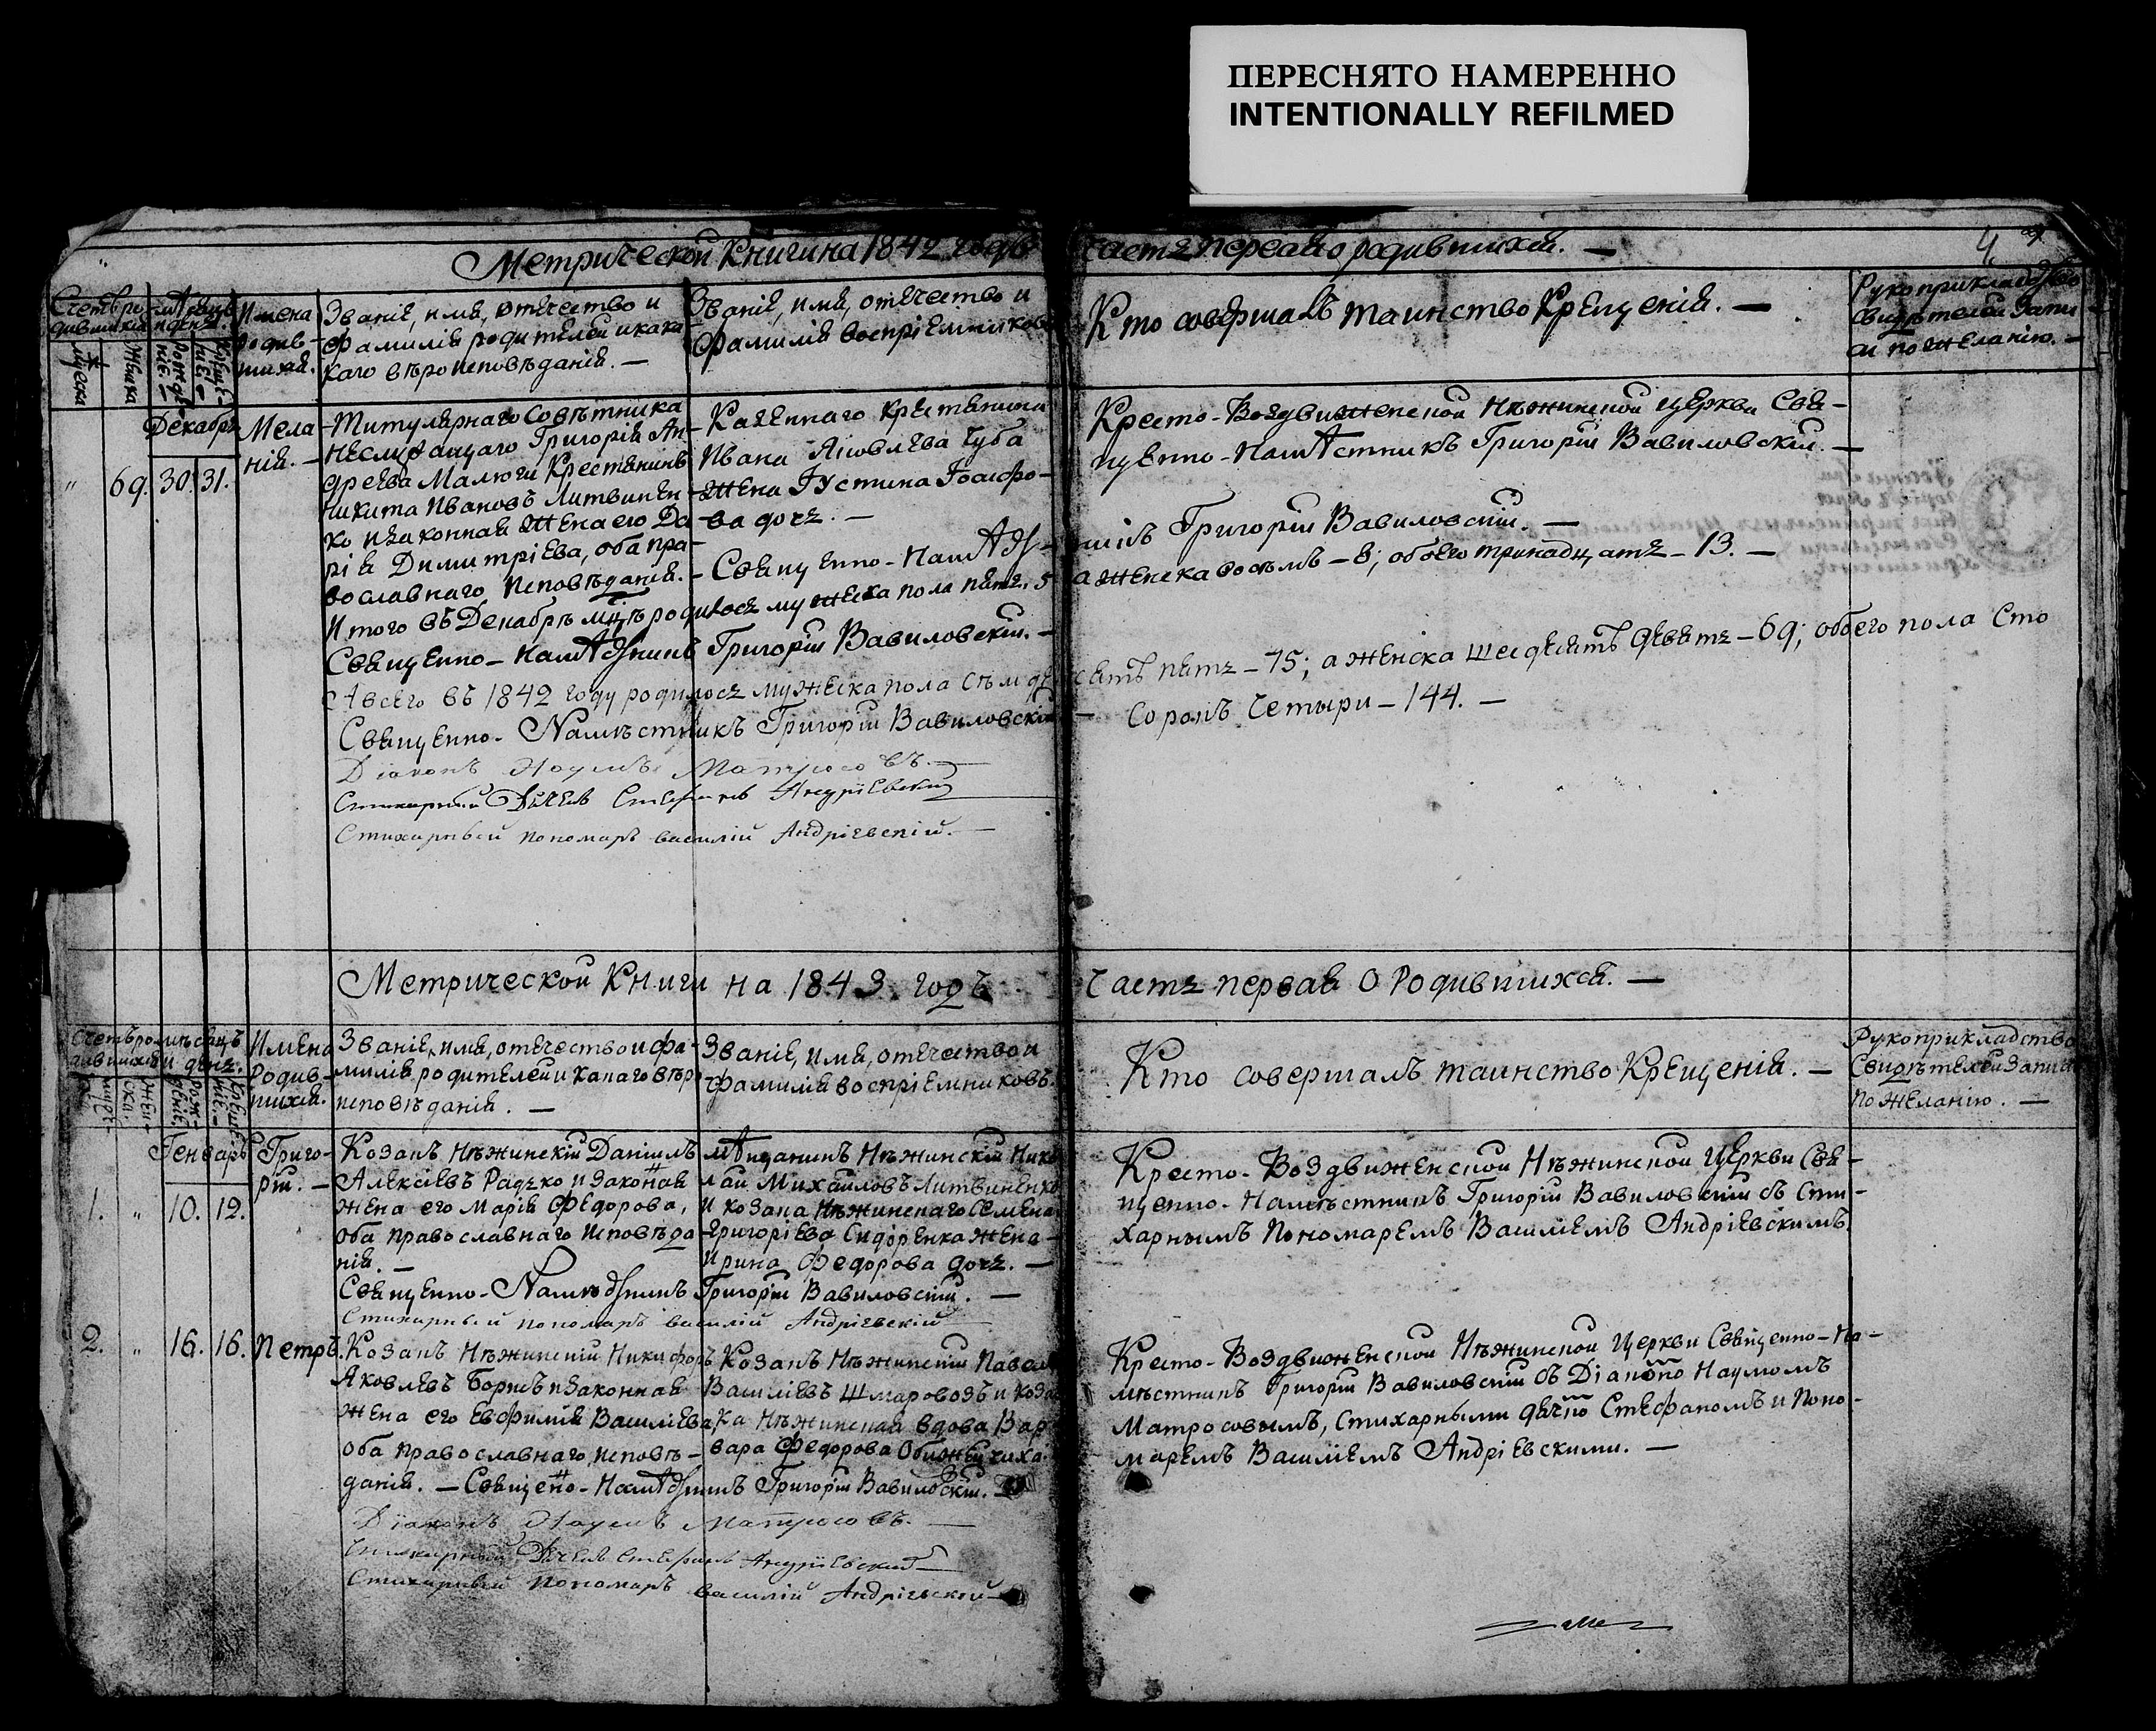 ПЕРЕСНЯТО НАМЕРЕННО
INTENTIONALLY REFILMED
Метрической Книги на 1842 годъ
Часть первая о родившихся. —
4
Счетъ родившихся
Мѣсяцъ и день.
Имена родив-
шихся.
Званіе, имя, отечество и
Фамилія родителей и кака-
каго вѣроисповѣданія. —
Званіе, имя, отечество и
Фамилія воспріемниковъ
Кто совершалъ таинство Крещенія. —
Рукоприкладство
свидѣтелей запи-
си по желанію. —
Мужска
Женска
Рожде-
ніе. —
Креще-
ніе. —
Декабрь
" 69. 30. 31.
Мела-
нія. —
Титулярнаго Совѣтника
неслужащаго Григорія Ан-
дреева Малюги Крестянинъ
Никита Ивановъ Литвинен-
ко и законная жена его Да-
рія Димитріева, оба пра-
вославнаго исповѣданія. —
Казеннаго крестянина
Ивана Яковлева Чуба
жена Іустина Іосифо-
ва дочь. —
Кресто-Воздвиженской Нѣжинской церкви Свя-
щенно-Намѣстникъ Григорій Вавиловскій. —
Священно-Намѣстникъ Григорій Вавиловскій. —
Итого въ Декабрѣ мцѣ родилось мужеска пола пять. 5 а женска восемь — 8; обоего тринадцать — 13. —
Священно-Намѣстникъ Григорій Вавиловскій. —
А всего въ 1842 году родилось мужеска пола семдесятъ пять — 75; а женска шесдесятъ девять — 69; обоего пола Сто
Сорокъ четыри — 144. —
Священно-Намѣстникъ Григорій Вавиловскій —
Діаконъ Наумъ Матросовъ. —
Стихарный Дячекъ Стефанъ Андріевскій
Стихарный пономарь василій Андріевскій. —
Метрической Книги на 1843. годъ
Часть первая о Родившихся. —
Счетъ родившихся
мѣсяцъ и день.
Имена
Родив-
шихся.
Званіе, имя, отечество и фа-
милія родителей и какаго вѣро-
исповѣданія. —
Званіе, имя, отечество и
фамилія воспріемниковъ.
Кто совершалъ таинство Крещенія. —
Рукоприкладство
Свидѣтелей записи
по желанію. —
Муже-
ска.
Жен-
ска.
Рож-
деніе.
Креще-
ніе. —
Генварь
1. " 10. 12.
Григо-
рій. —
Козакъ Нѣжинскій Даніилъ
Алексіевъ Радько и законая
жена его Марія Федорова,
оба православнаго исповѣда-
нія. —
Мѣщанинъ Нѣжинскій Нико-
лай Михайловъ Литвиненко
и козака Нѣжинскаго Семена
Григоріева Сидоренка жена —
Ирина Федорова дочь. —
Кресто-Воздвиженской Нѣжинской Церкви Свя-
щенно-Намѣстникъ Григорій Вавиловскій съ Сти-
харнымъ Пономаремъ Василіемъ Андріевскимъ.
Священно-Намѣстникъ Григорій Вавиловскій. —
Стихарный пономарь василій Андріевскій
2. " 16. 16.
Петръ.
Козакъ Нѣжинскій Никифоръ
Яковлевъ Борисъ и законная
жена его Евфимія Василіева,
оба православнаго исповѣ-
данія. —
Козакъ Нѣжинскій Павелъ
Василіевъ Шмаровозъ и коза-
ка Нѣжинская вдова Вар-
вара Федорова
Кресто-Воздвиженской Нѣжинской Церкви Священно-На-
мѣстникъ Григорій Вавиловскій съ Діакопо Наумомъ
Матросовымъ, Стихарными дячпо Стефаномъ и Поно-
маремъ Василіемъ Андріевскими. —
Священо-Намѣстникъ Григорій Вавиловскій. —
Діаконъ Наумъ Матросовъ. —
Стихарный Дячекъ Стефанъ Андріевскій
Стихарный пономарь василій Андріевской —